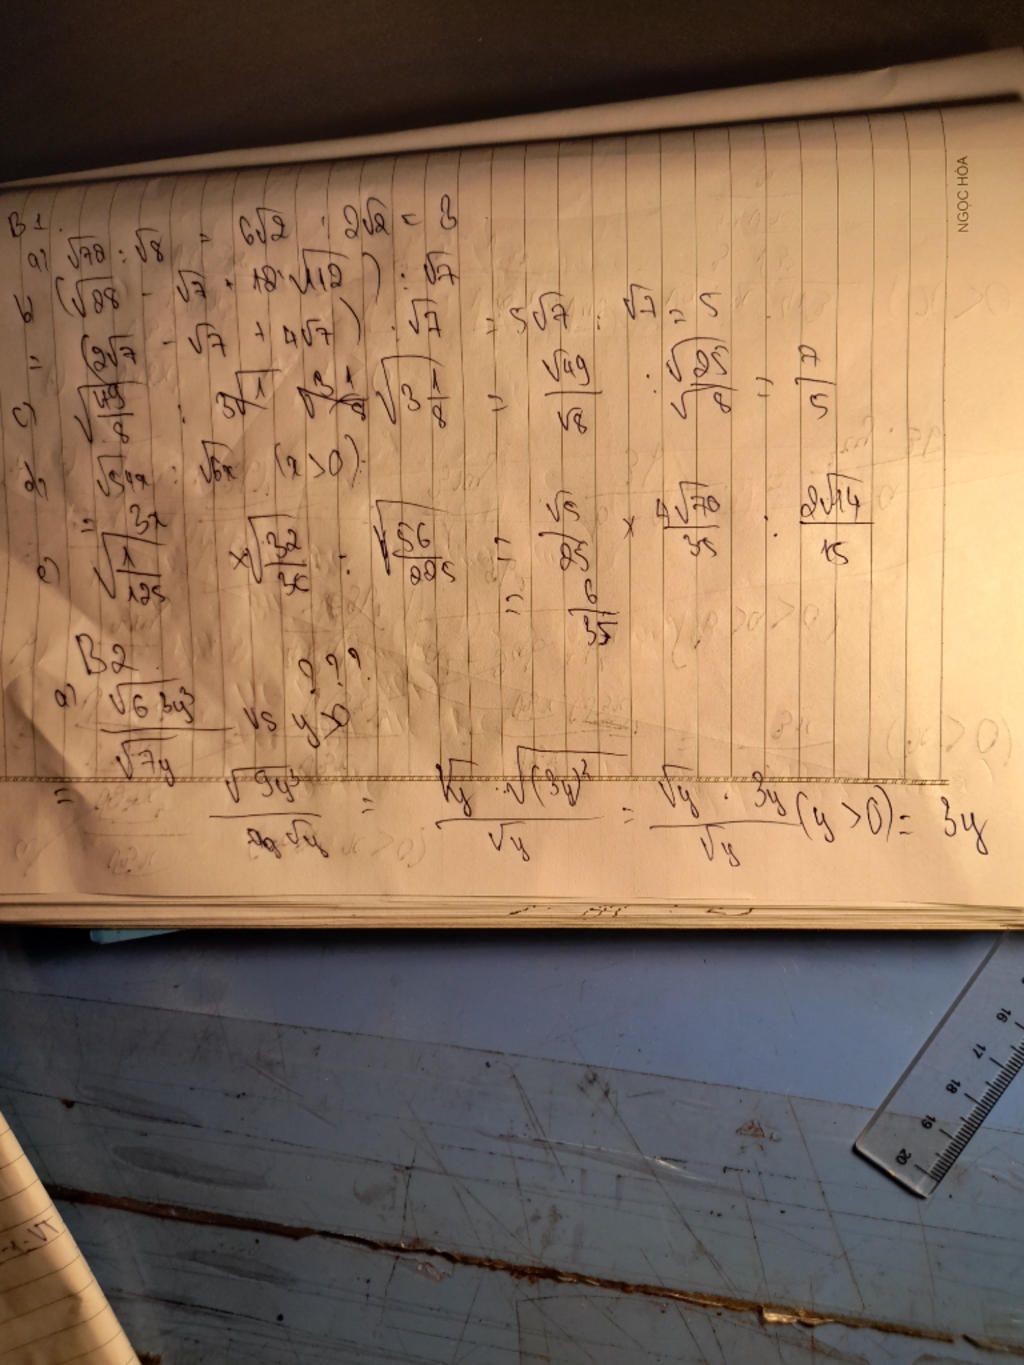 B1.
a) √72 : √8 = 6√2 : 2√2 = 3
b) (√28 - √7 + √112) : √7
= (2√7 - √7 + 4√7) : √7 = 5√7 : √7 = 5
c) √(49/8) : √(3 1/8) = √49/√8 : √(25/8) = 7/5
d) √54x : √6x (x>0)
= 3x
e) √(1/125) × √(32/35) : √(56/225) = √5/25 × 4√70/35 : 2√14/15
= 6/35
B2 ???
a) √63y³/√7y vs y>0
= √9y³/√y = √y . √(3y)²/√y = √y . 3y/√y (y>0) = 3y
NGỌC HÒA
16
17
18
19
20